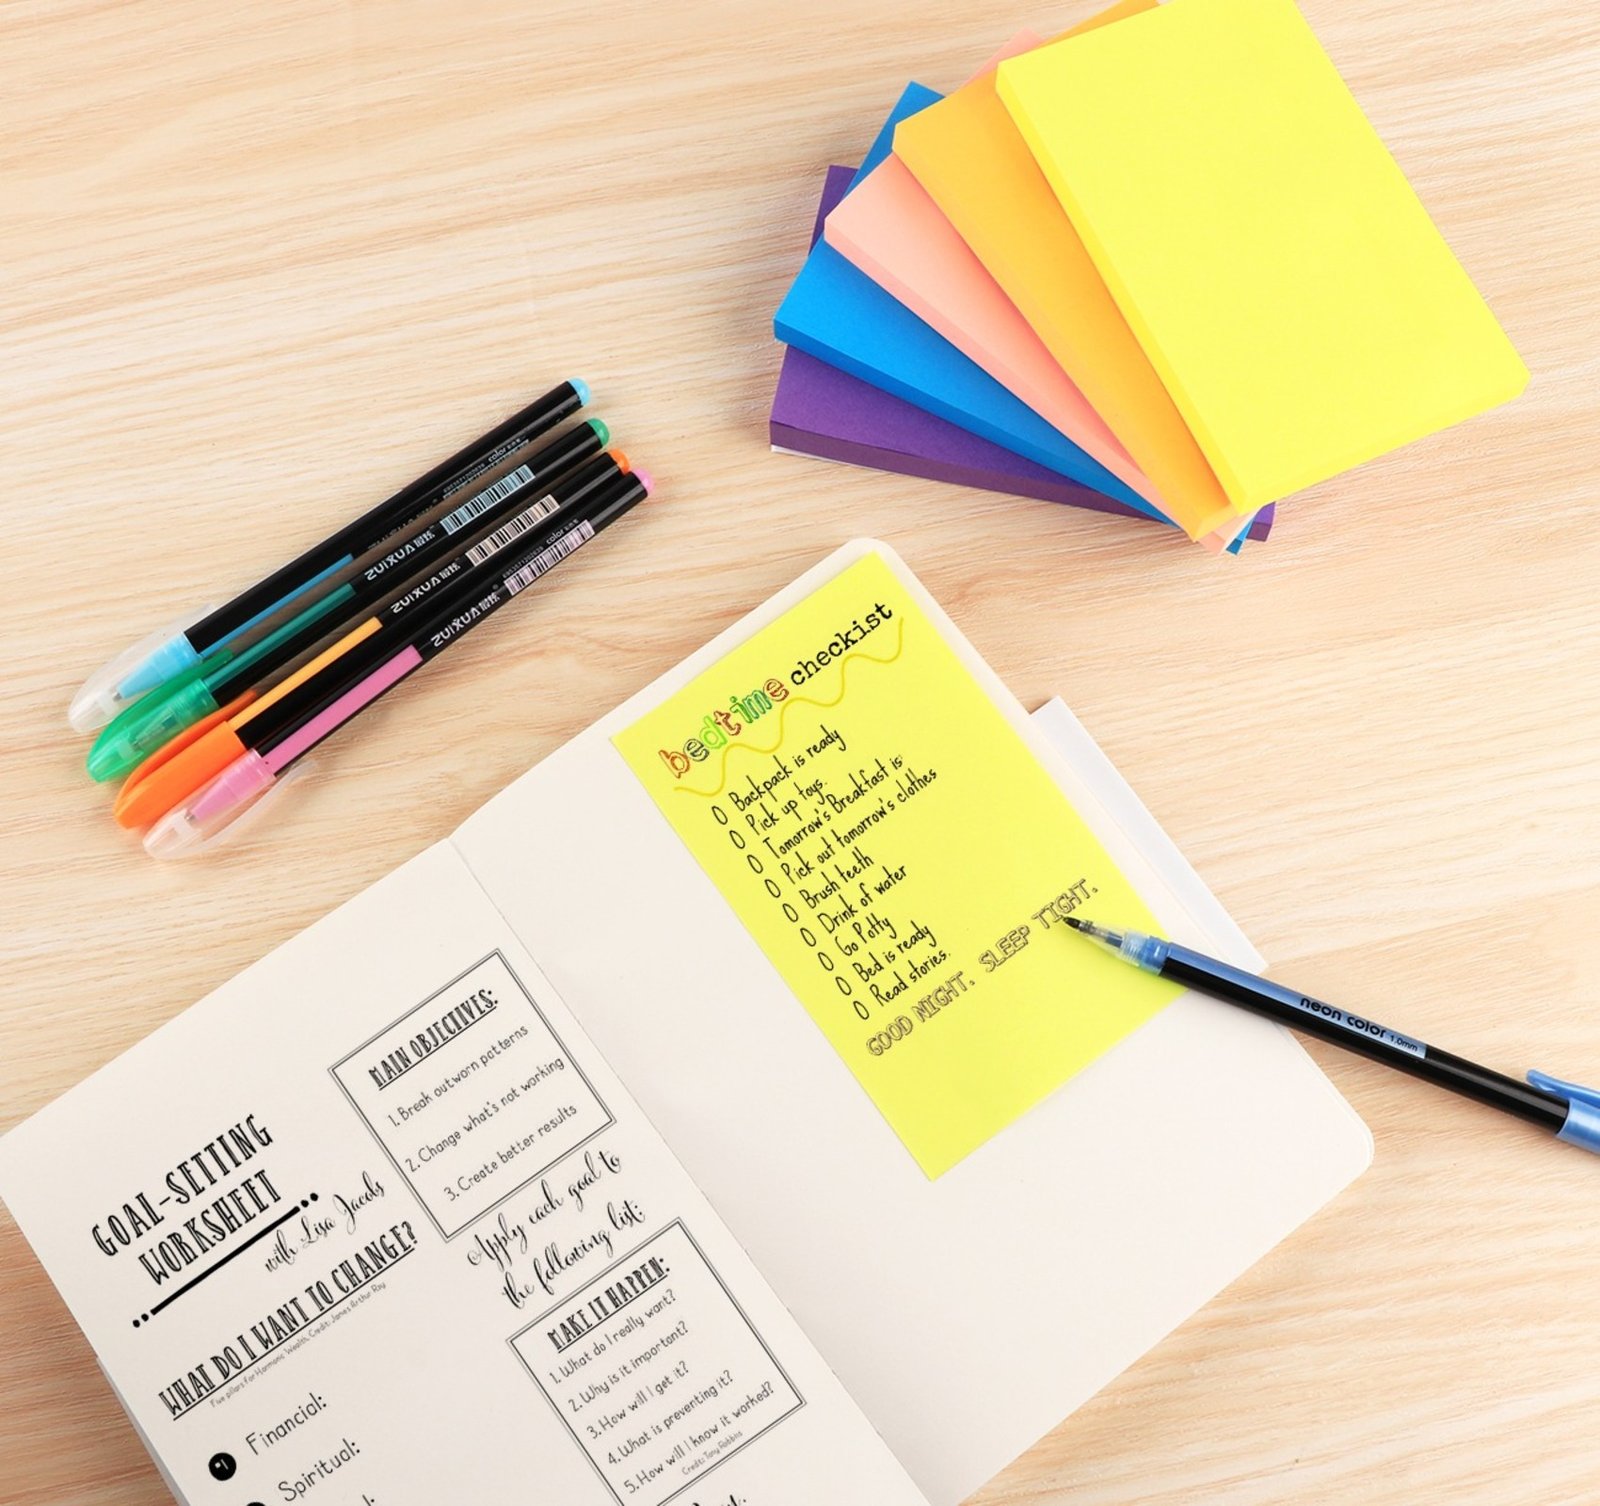 bedtime checkist
Backpack is ready
Pick up toys.
Tomorrow's Breakfast is:
Pick out tomorrow's clothes
Brush teeth
Drink of water
Go Potty
Bed is ready
Read stories.
GOOD NIGHT. SLEEP TIGHT.
neon color 1.0mm
ZUIXUA
ZUIXUA
ZUIXUA
GOAL-SETTING
WORKSHEET
with Lisa Jacobs
WHAT DO I WANT TO CHANGE?
Five pillars for Harmonic Wealth, Credit: James Arthur Ray
#1 Financial:
Spiritual:
MAIN OBJECTIVES:
1. Break outworn patterns
2. Change what's not working
3. Create better results
Apply each goal to
the following list:
MAKE IT HAPPEN:
1. What do I really want?
2. Why is it important?
3. How will I get it?
4. What is preventing it?
5. How will I know it worked?
Credit: Tony Robbins